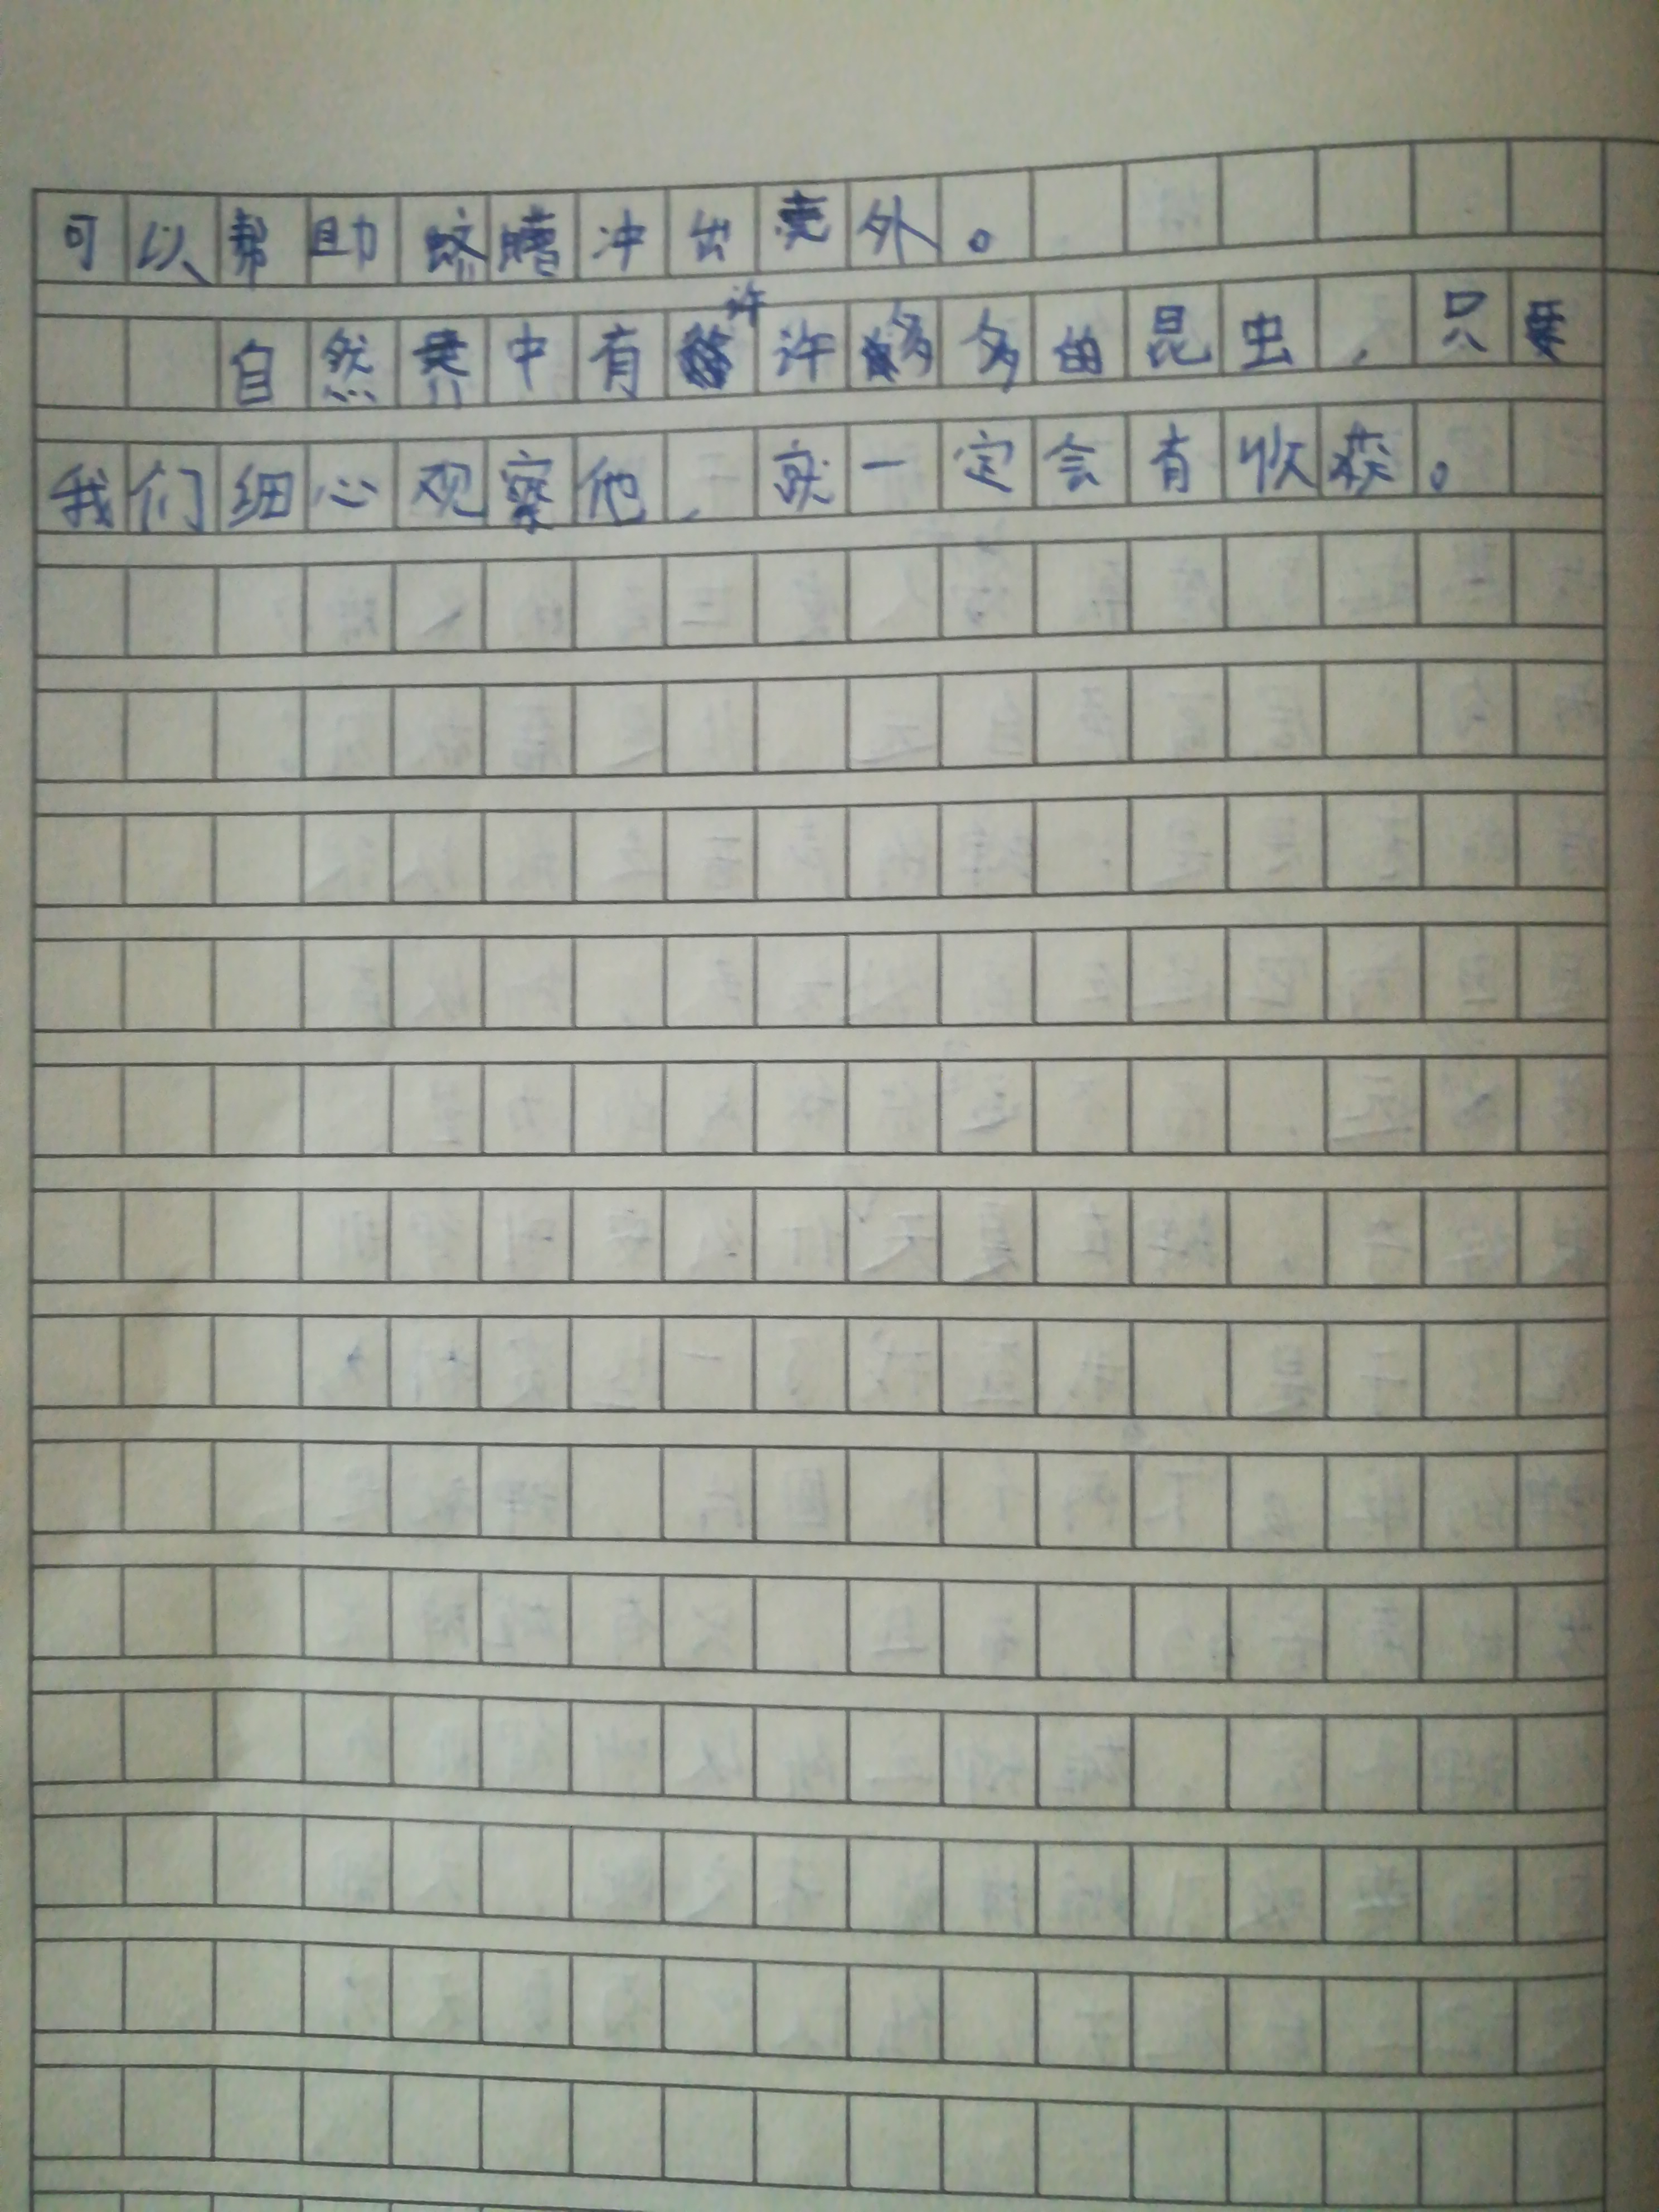 可以帮助蛴螬冲出壳外。
自然界中有许许多多的昆虫，只要
我们细心观察他，就一定会有收获。